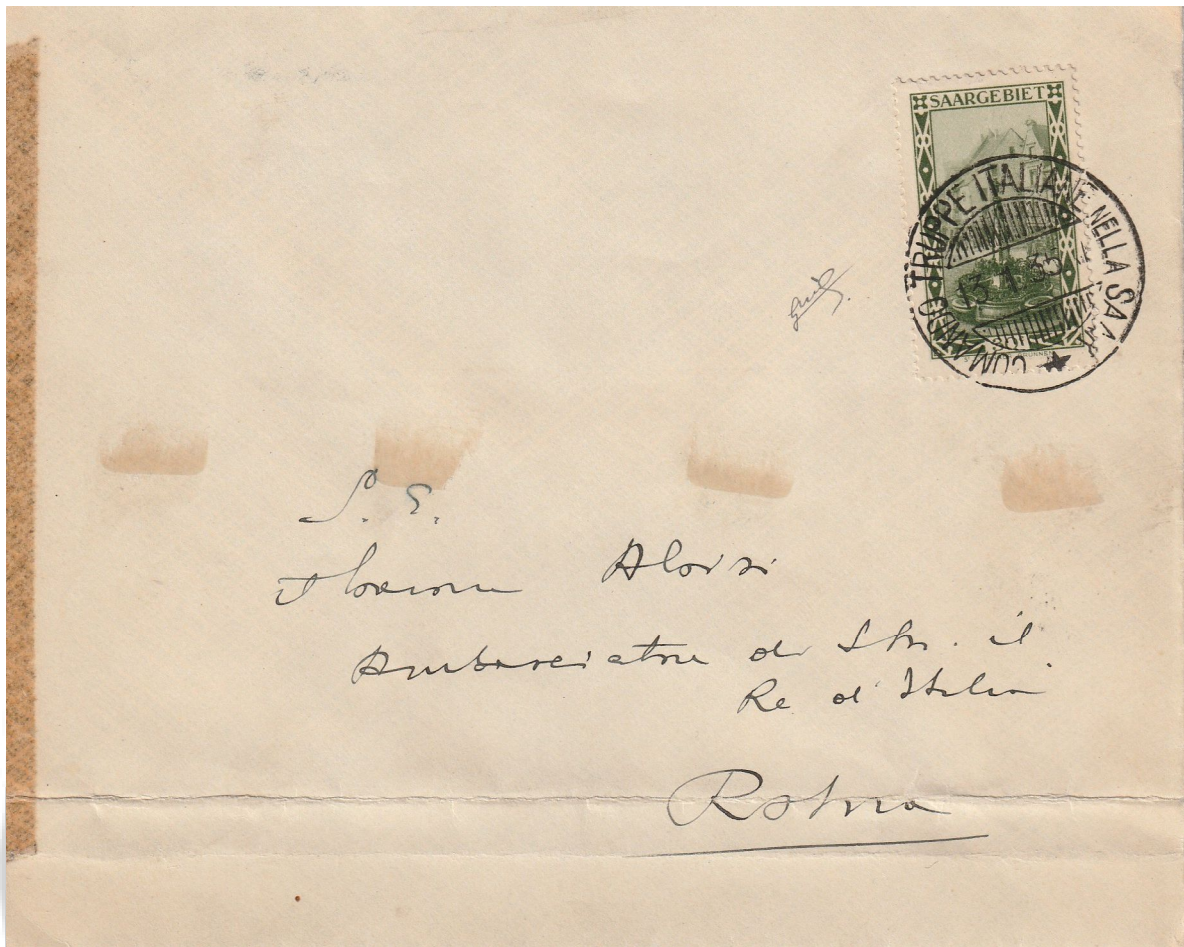 SAARGEBIET
COMANDO TRUPPE ITALIANE NELLA SAAR
13.1.35
BRUNNEN
S. E.
Il Barone Aloisi
Ambasciatore di S.M. il
Re d'Italia
Roma